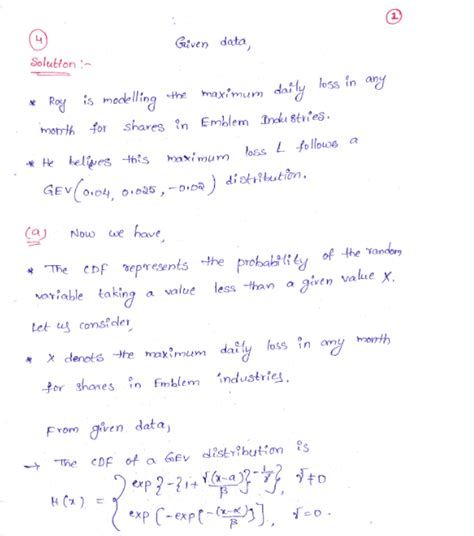 1
4
Given data,
Solution :-
* Roy is modelling the maximum daily loss in any
month for shares in Emblem Industries.
* He believes this maximum loss L follows a
GEV(0.04, 0.025, -0.02) distribution.
(a) Now we have,
* The CDF represents the probability of the random
variable taking a value less than a given value X.
Let us consider,
* X denots the maximum daily loss in any month
for shares in Emblem industries.
From given data,
→ The CDF of a GEV distribution is
H(x) = { exp{-{1+ γ(x-α)/β}^(-1/γ)}, γ≠0
exp[-exp{-(x-α)/β}], γ=0.